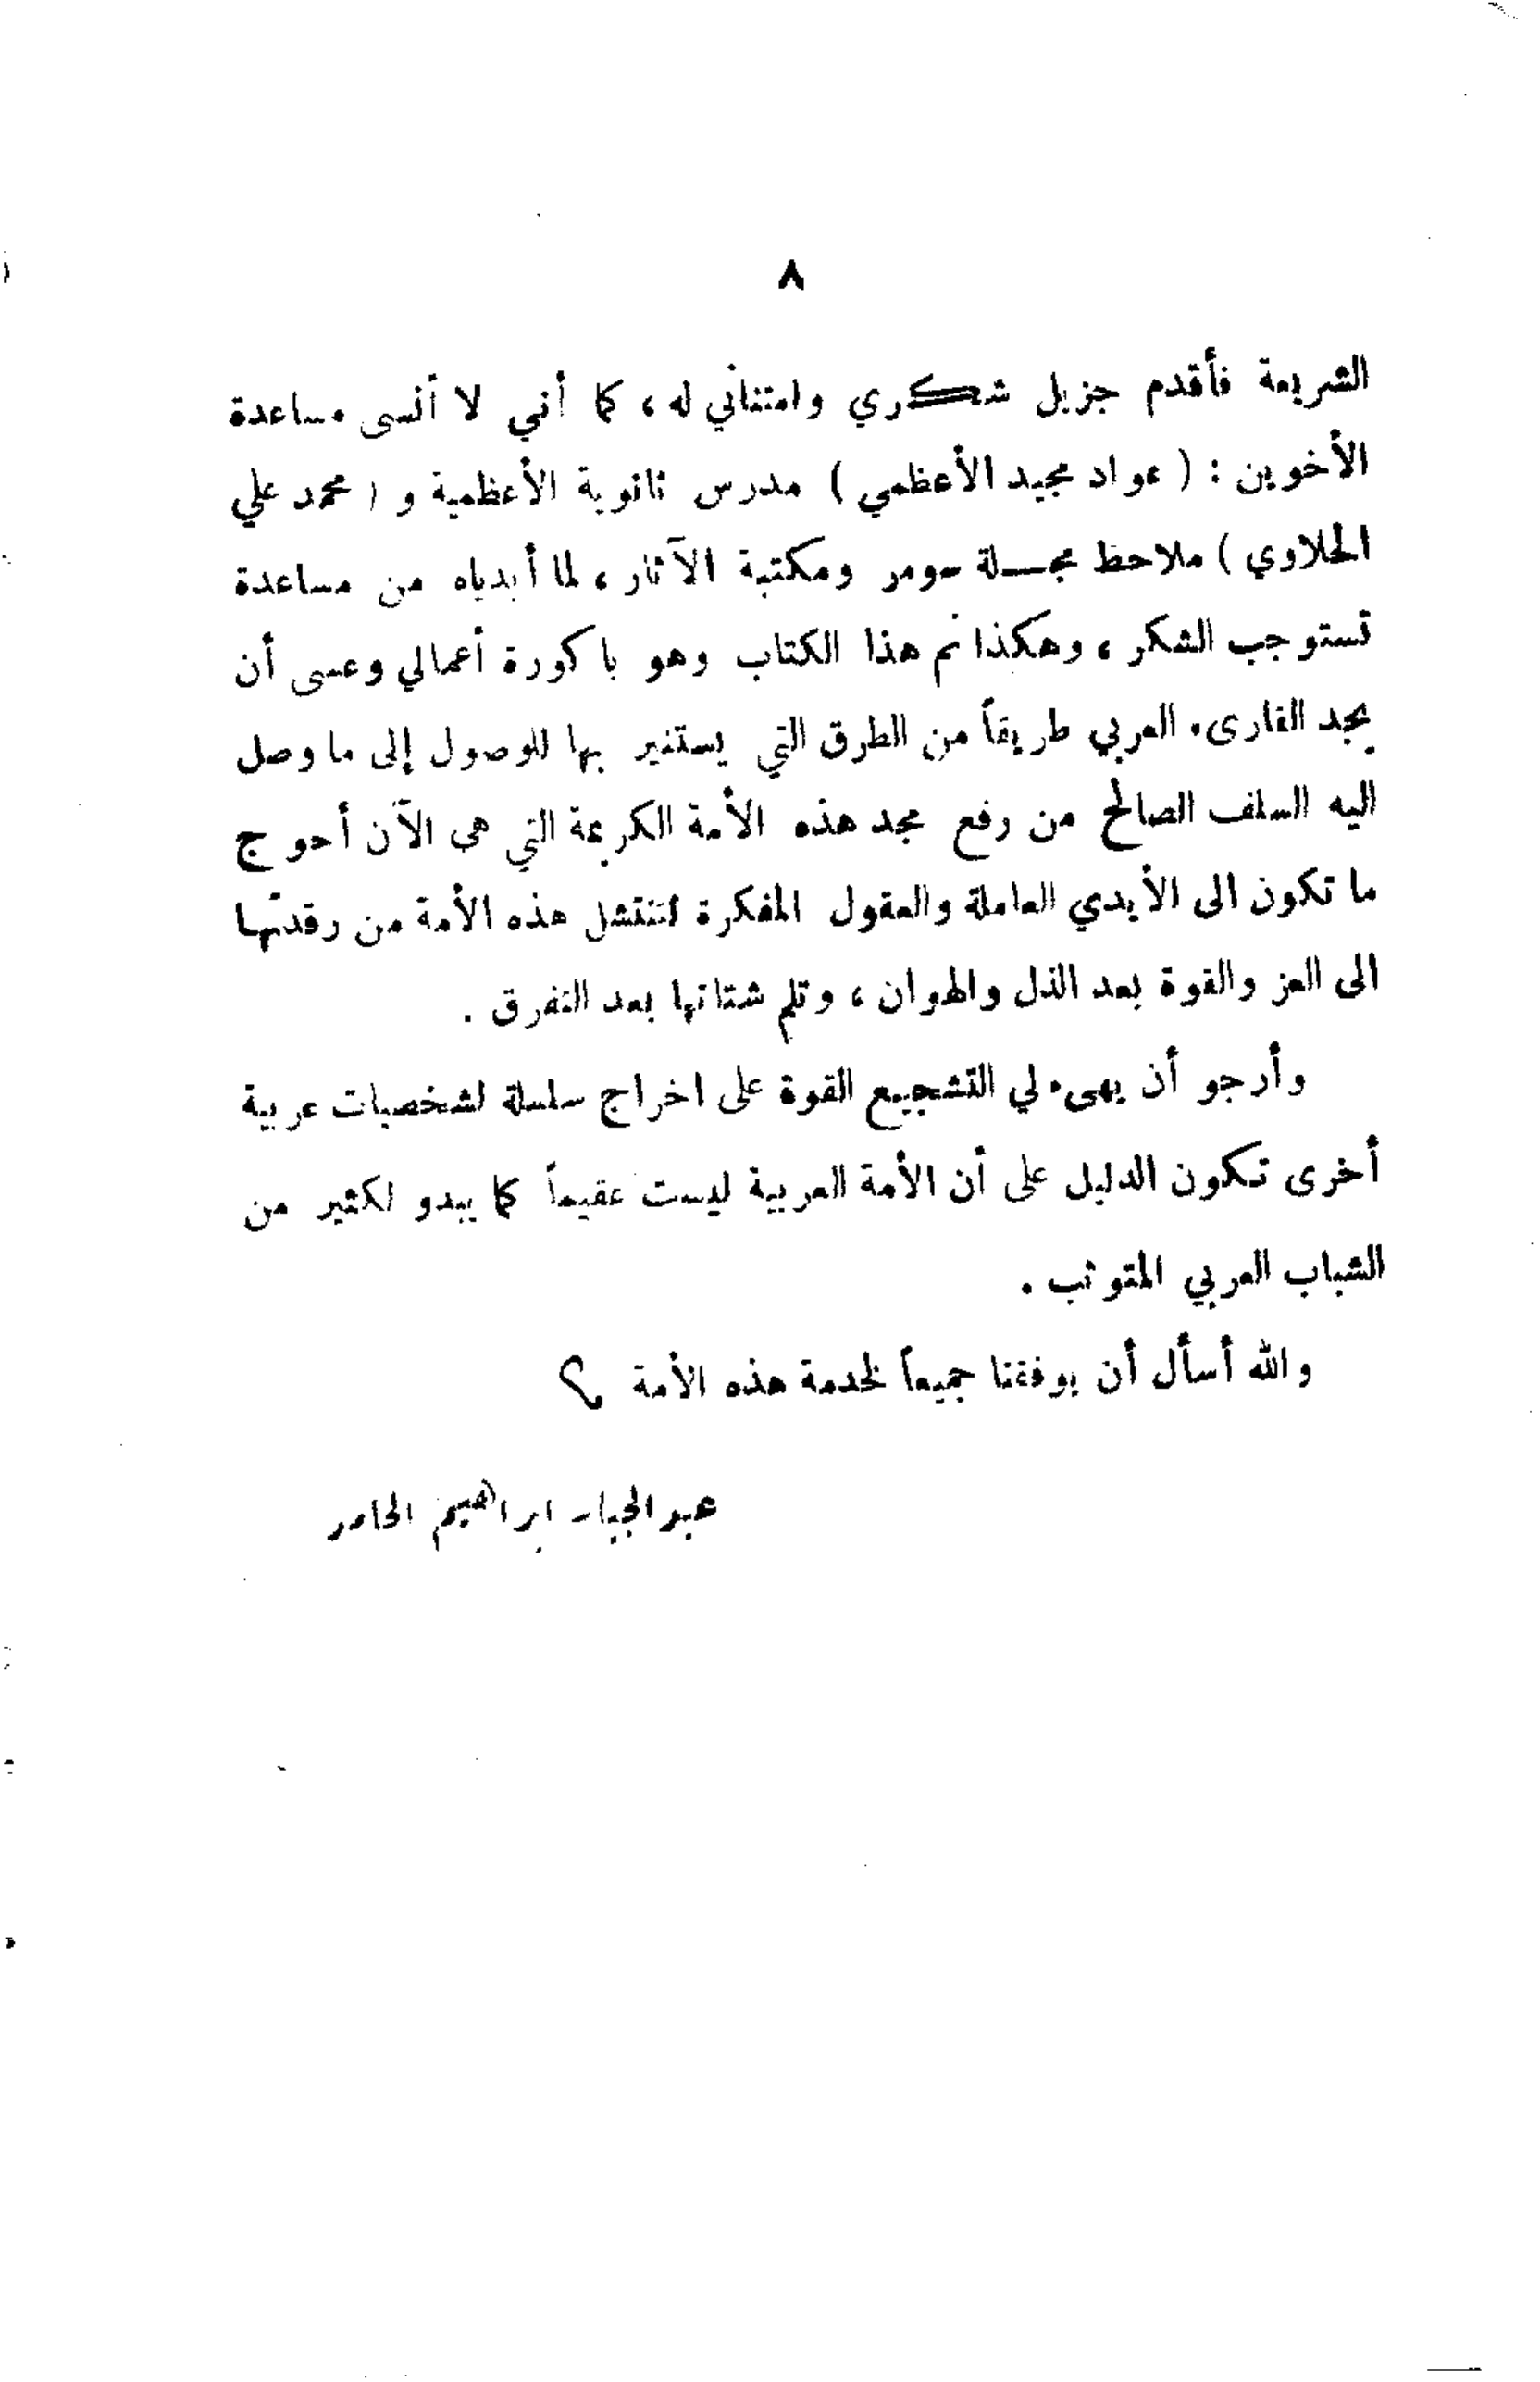 ٨
الشريعة فأقدم جزيل شكري وامتناني له، كما أني لا أنسى مساعدة
الأخوين : ( عواد مجيد الأعظمي ) مدرس ثانوية الأعظمية و ( محمد علي
الحلاوي ) ملاحظ مجلة سومر ومكتبة الآثار ، لما أبدياه من مساعدة
تستوجب الشكر ، وهكذا تم هذا الكتاب وهو باكورة أعمالي وعسى أن
يجد القارىء العربي طريقاً من الطرق التي يستنير بها للوصول إلى ما وصل
اليه السلف الصالح من رفع مجد هذه الأمة الكريمة التي هي الآن أحوج
ما تكون الى الأيدي العاملة والعقول المفكرة لتنتشل هذه الأمة من رقدتها
الى العز والقوة بعد الذل والهوان ، وتلم شتاتها بعد التفرق .
وأرجو أن يهىء لي التشجيع القوة على اخراج سلسلة لشخصيات عربية
أخرى تكون الدليل على أن الأمة العربية ليست عقيماً كما يبدو لكثير من
الشباب العربي المتوثب .
والله أسأل أن يوفقنا جميعاً لخدمة هذه الأمة
عبد الجبار ابراهيم الحامد